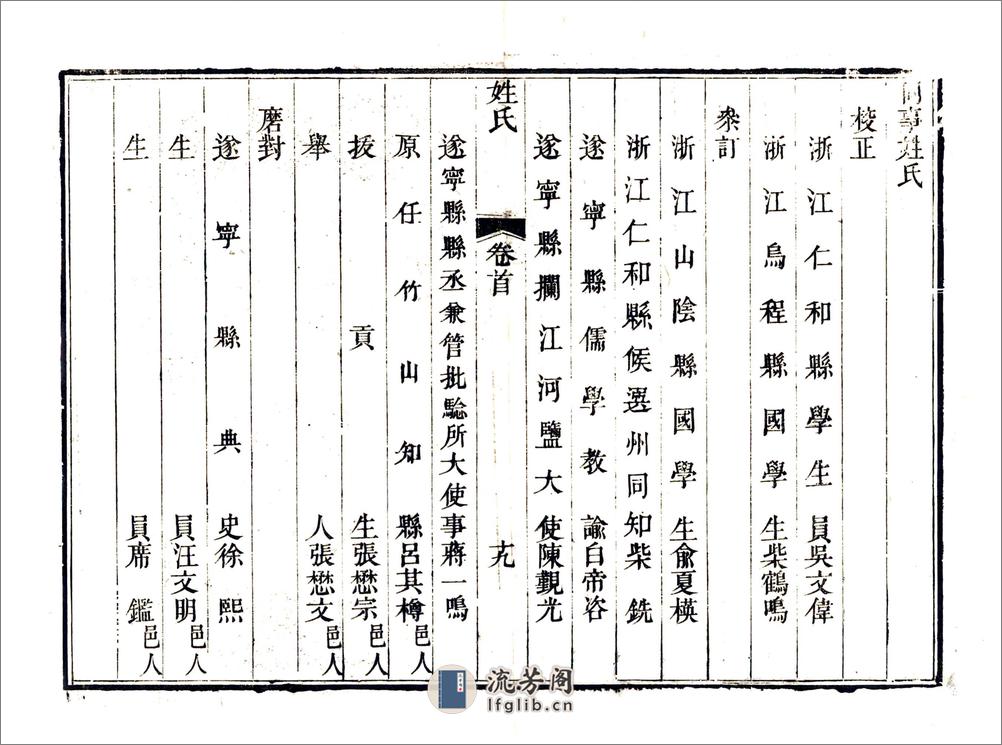 同事姓氏
校正
浙江仁和縣學生員吳文偉
浙江烏程縣國學生柴鶴鳴
叅訂
浙江山陰縣國學生俞夏模
浙江仁和縣候選州同知柴銑
遂寧縣儒學教諭白帝咨
遂寧縣攔江河鹽大使陳觀光
姓氏
卷首
十九
遂寧縣縣丞兼管批騐所大使事蔣一鳴
原任竹山知縣呂其樽邑人
拔貢生張懋宗邑人
舉人張懋文邑人
磨對
遂寧縣典史徐熙
生員汪文明邑人
生員席鑑邑人
流芳阁
lfglib.cn